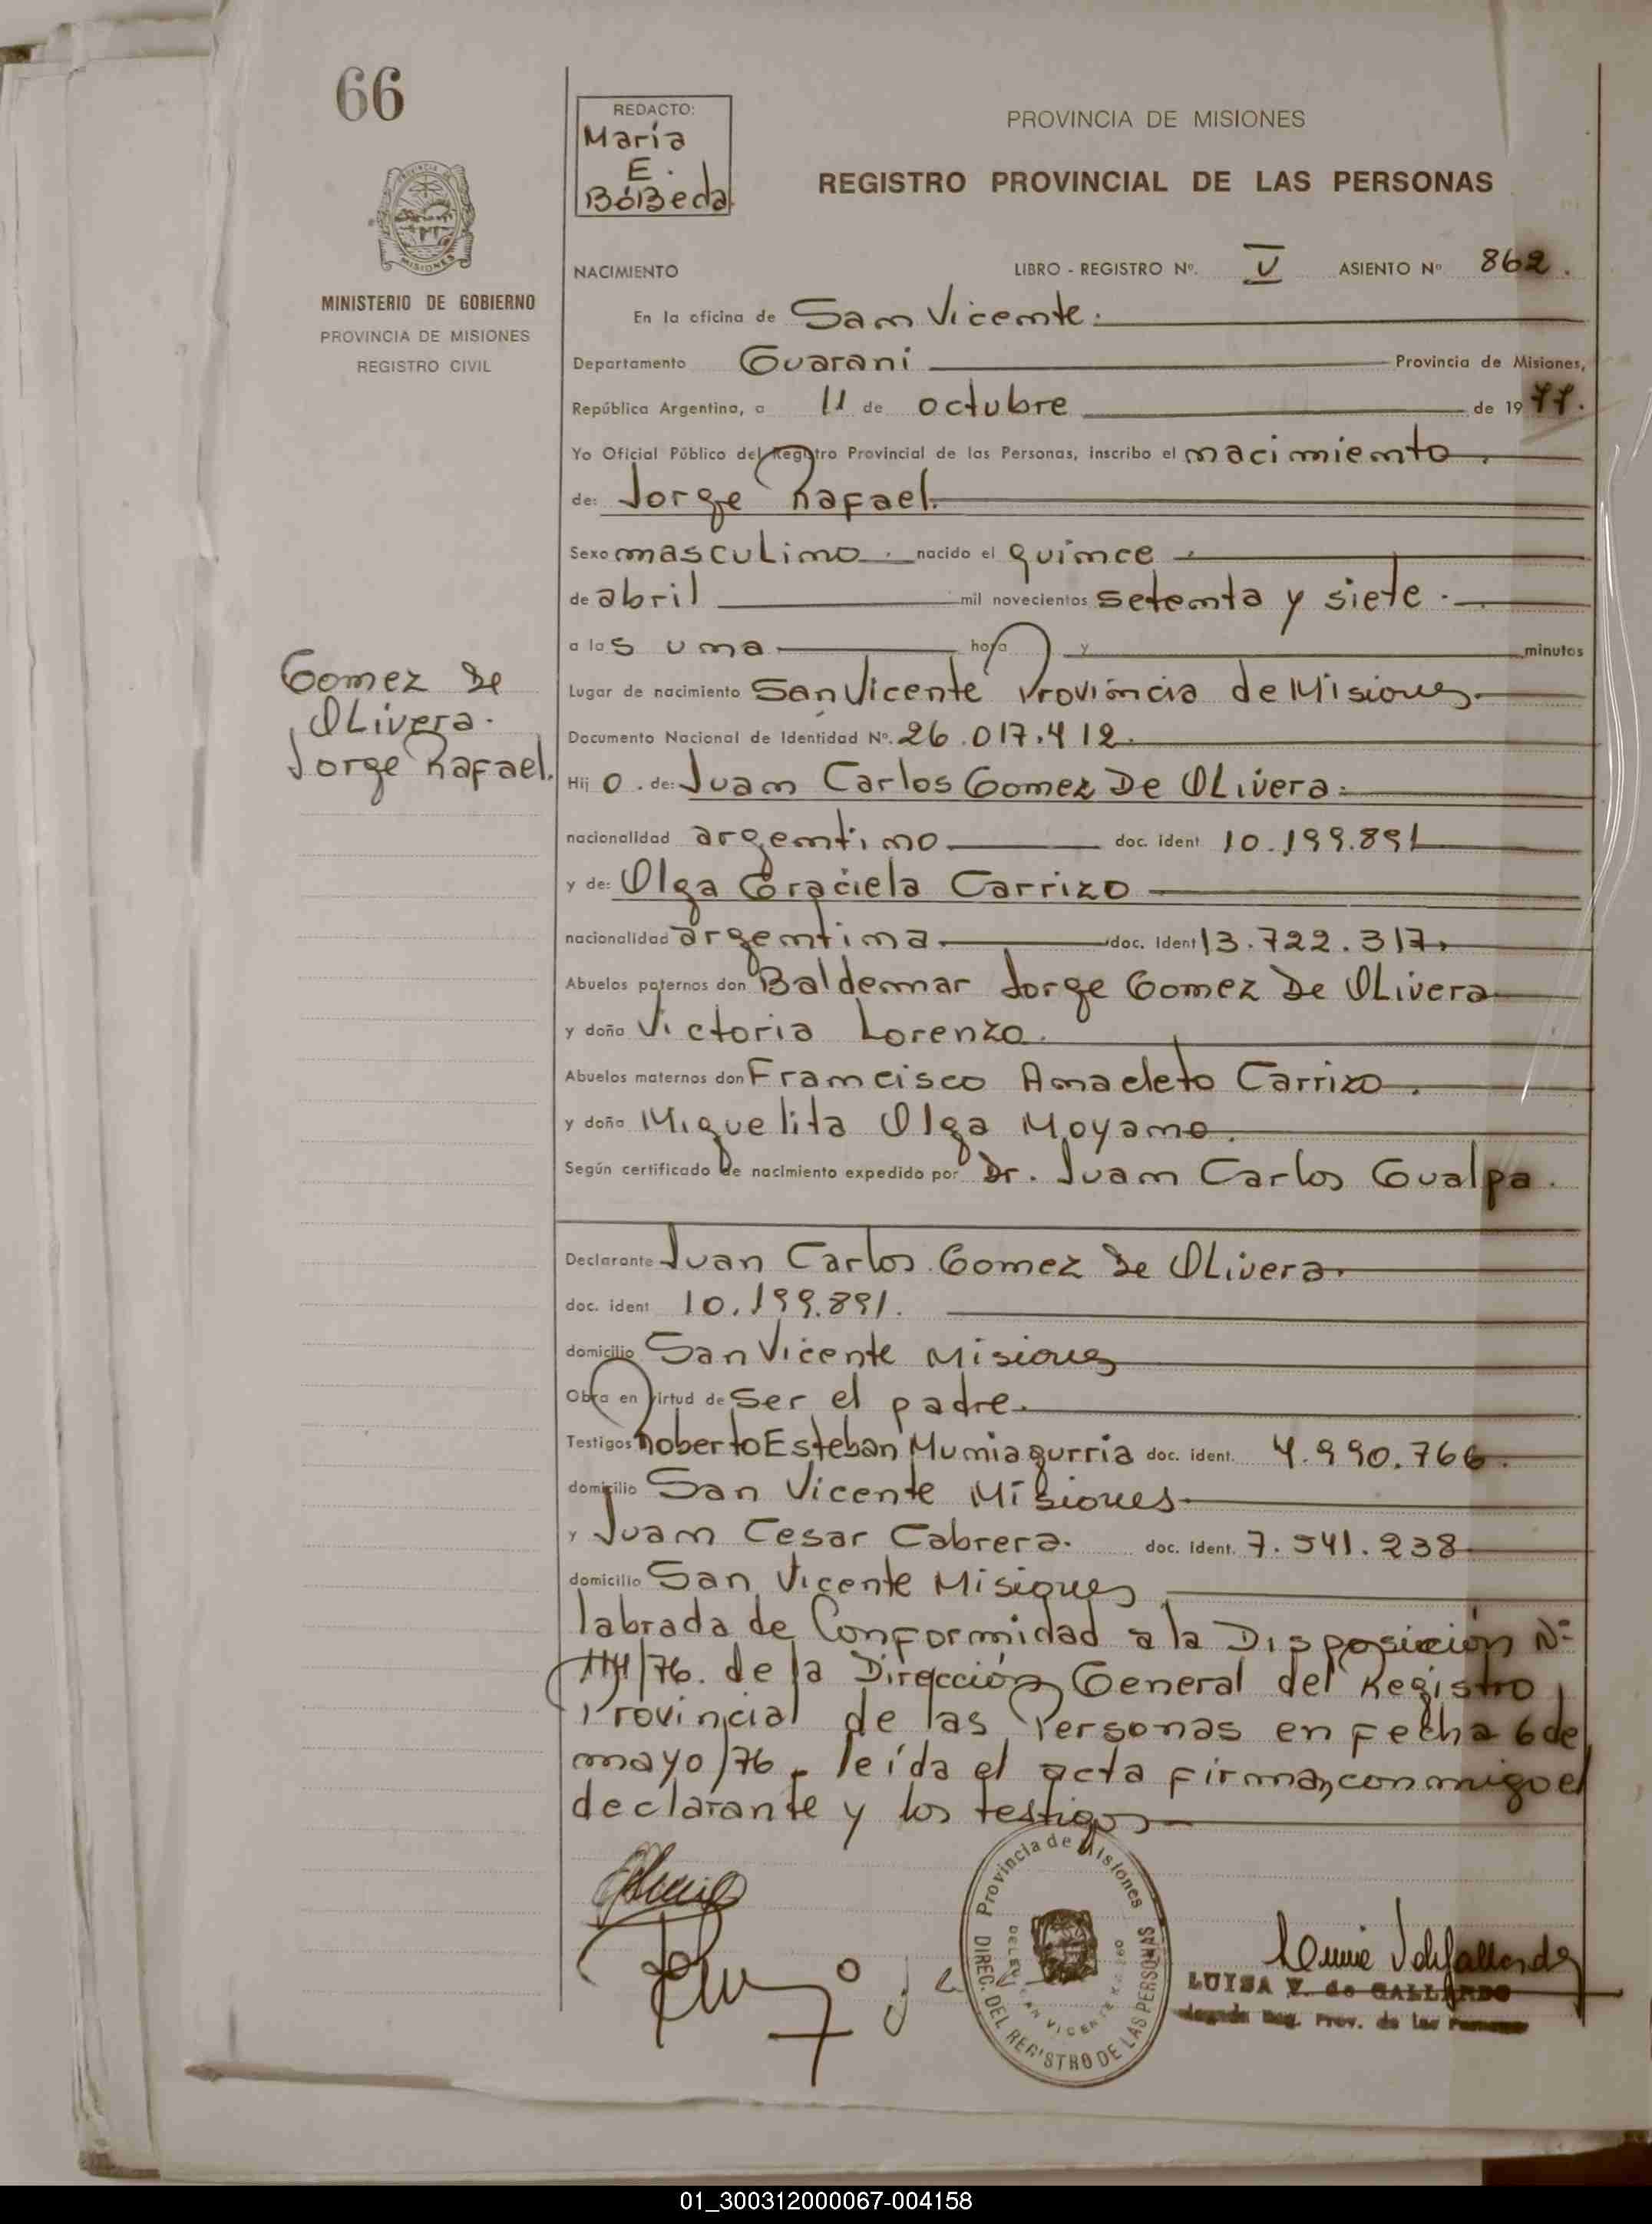 66
REDACTO:
Maria
E.
BóBeda
PROVINCIA DE MISIONES
REGISTRO PROVINCIAL DE LAS PERSONAS
MINISTERIO DE GOBIERNO
PROVINCIA DE MISIONES
REGISTRO CIVIL
NACIMIENTO LIBRO - REGISTRO Nº. V ASIENTO Nº 862.
En la oficina de San Vicente.
Departamento Guarani Provincia de Misiones,
República Argentina, a 11 de octubre de 1977.
Yo Oficial Público del Registro Provincial de las Personas, inscribo el nacimiento
de: Jorge Rafael.
Sexo masculino. nacido el quince
de abril mil novecientos setenta y siete.
a las una hora y minutos
Gomez De
Olivera.
Jorge Rafael.
Lugar de nacimiento San Vicente Provincia de Misiones
Documento Nacional de Identidad Nº. 26.017.412.
Hijo. de: Juan Carlos Gomez De Olivera.
nacionalidad argentino doc. ident 10.199.891
y de: Olga Graciela Carrizo
nacionalidad argentina. doc. ident 13.722.317.
Abuelos paternos don Baldemar Jorge Gomez De Olivera
y doña Victoria Lorenzo.
Abuelos maternos don Francisco Anacleto Carrizo.
y doña Miguelita Olga Moyano.
Según certificado de nacimiento expedido por Dr. Juan Carlos Gualpa.
Declarante Juan Carlos Gomez De Olivera.
doc. ident 10.199.891.
domicilio San Vicente Misiones
Obra en virtud de ser el padre.
Testigos Roberto Esteban Muniagurria doc. ident. 4.990.766.
domicilio San Vicente Misiones
y Juan Cesar Cabrera. doc. ident. 7.541.238
domicilio San Vicente Misiones
labrada de Conformidad a la Disposición Nº
/76. de la Dirección General del Registro
Provincial de las Personas en fecha 6 de
mayo/76. leída el acta firman, conmigo el
declarante y los testigos
Provincia de Misiones
DIREC. DEL REGISTRO DE LAS PERSONAS
LUISA V. de GALLARDO
Reg. Prov. de las Personas
01_300312000067-004158